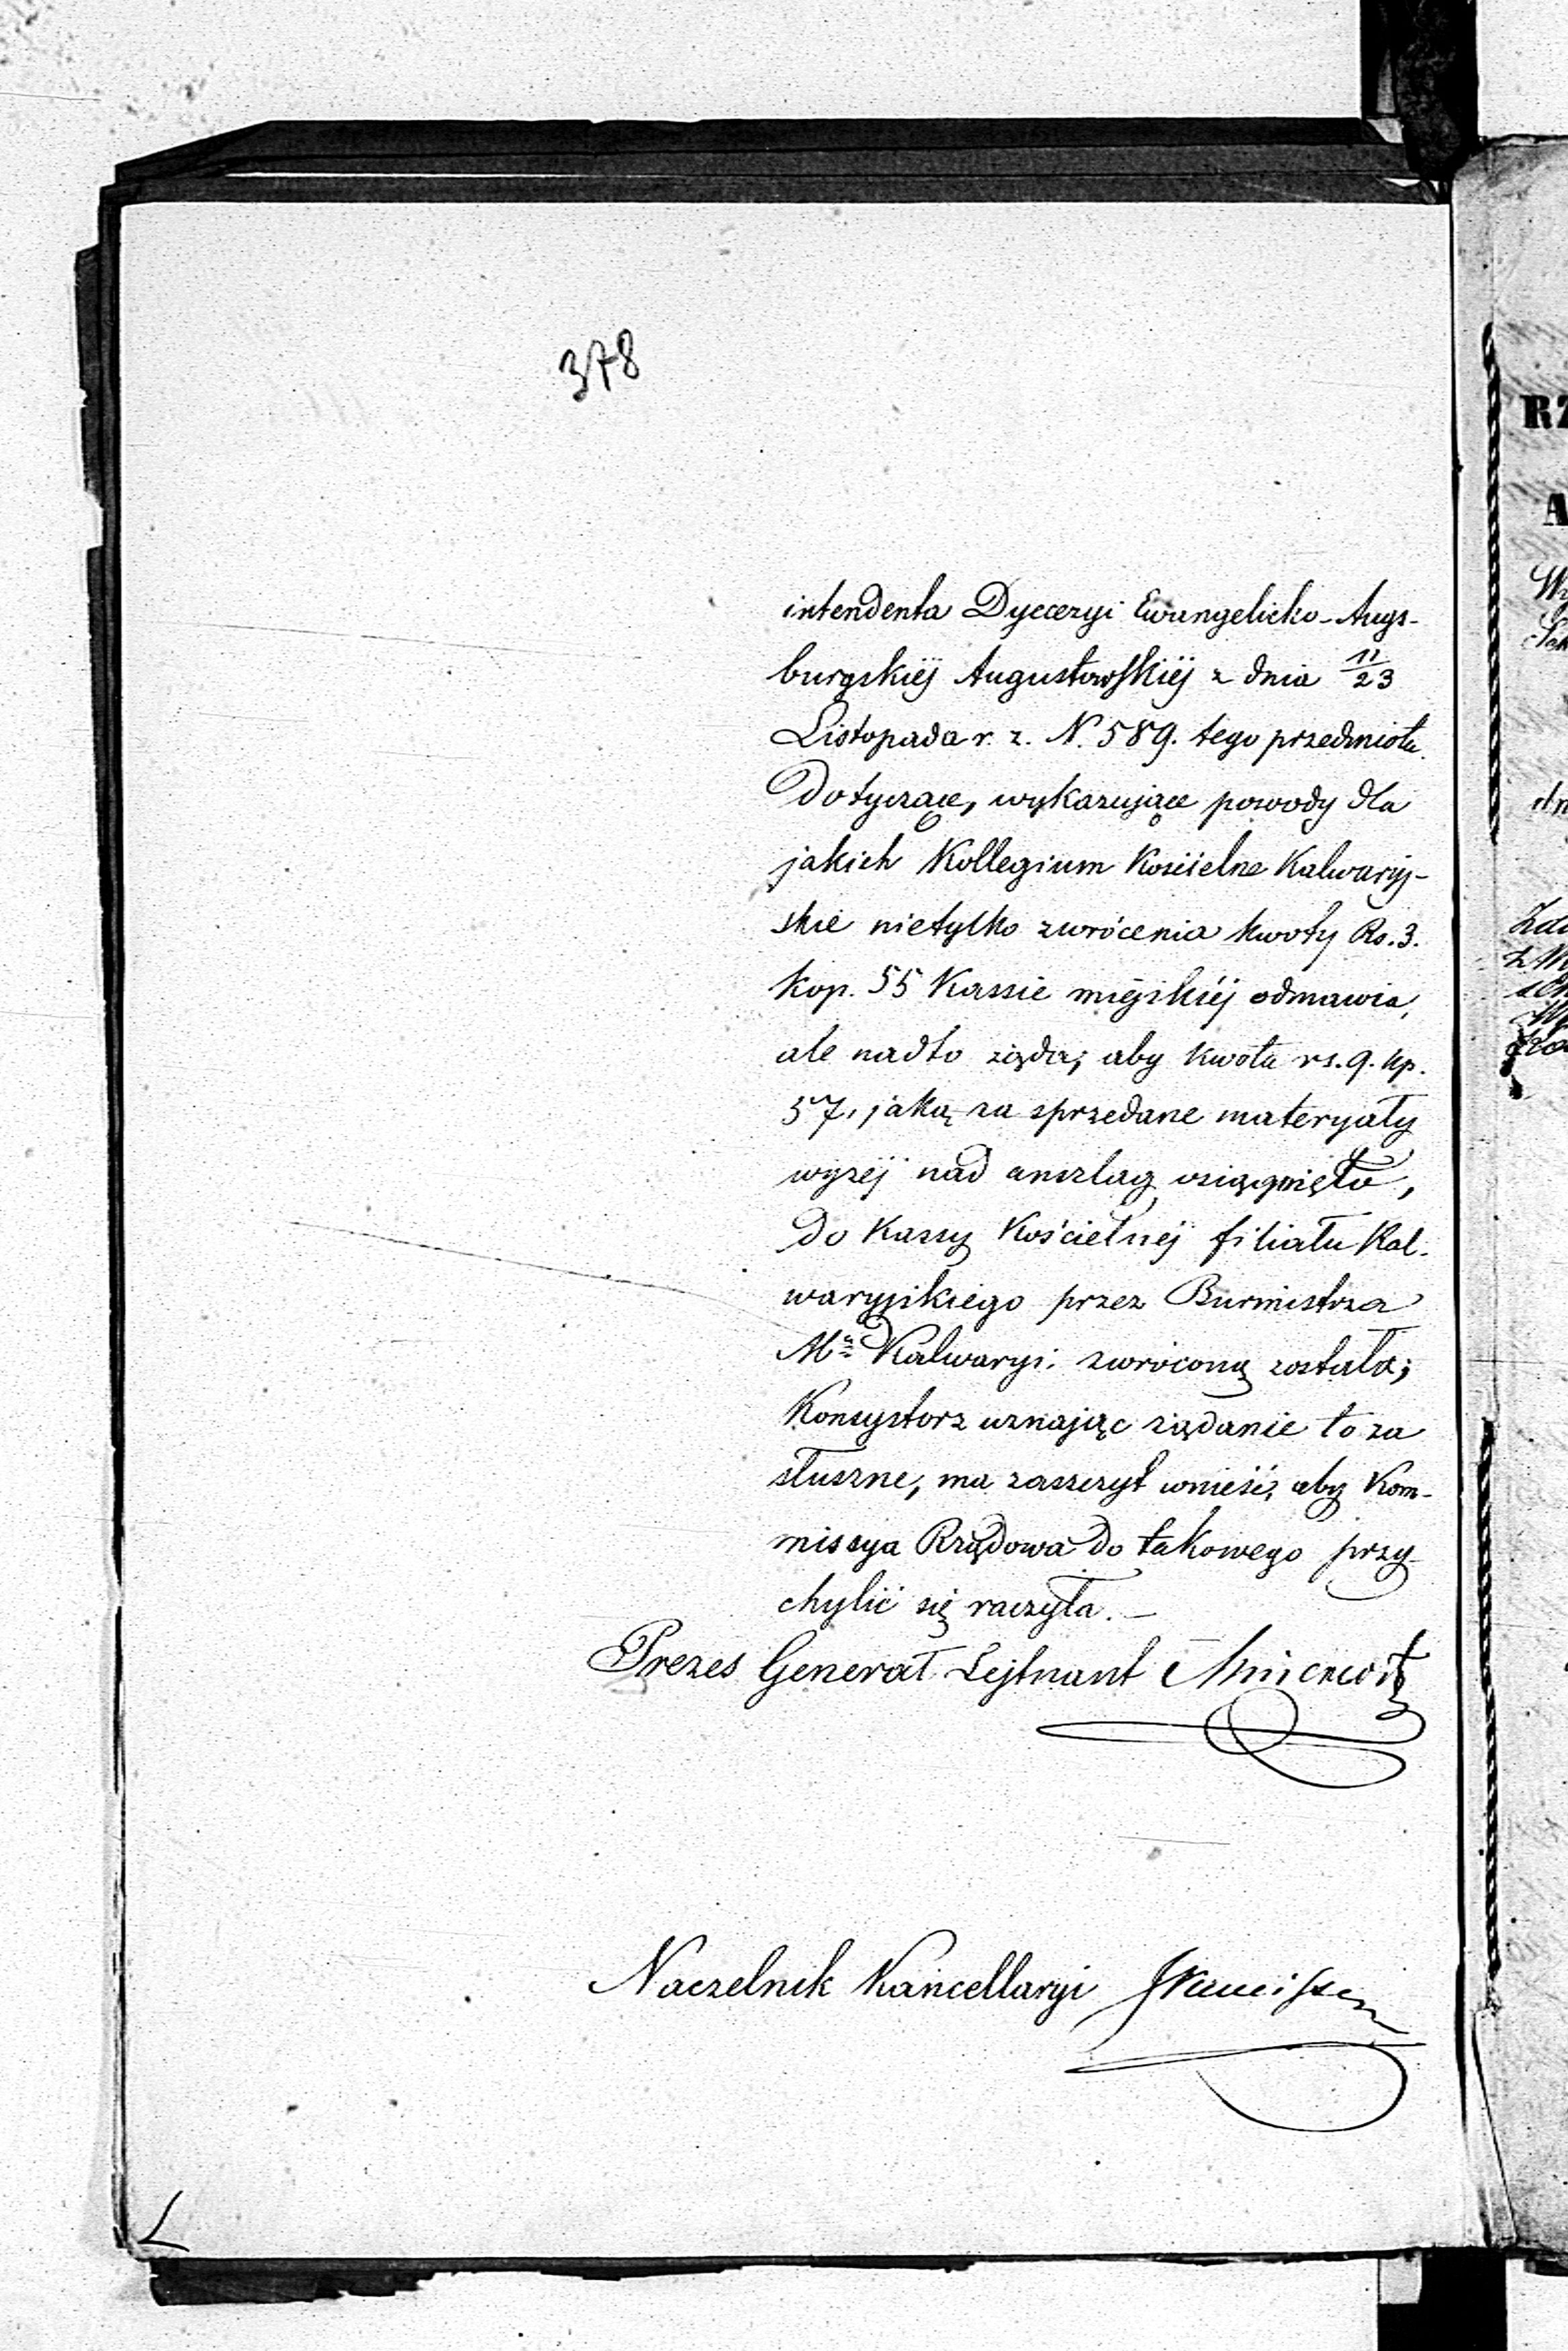 378
intendenta Dyecezyi Ewangelicko-Augs-
burgskiéj Augustowskiéj z dnia 11/23
Listopada r. z. N. 589. tego przedmiotu
dotyczące, wykazujące powody dla
jakich Kollegium Kościelne Kalwaryj-
skie nietylko zwrócenia kwoty Rs. 3.
kop. 55 Kassie miéjskiéj odmawia,
ale nadto żąda, aby kwota rs. 9. kp.
57, jaką za sprzedane materyały
wyżéj nad anszlag osiągnięto,
do Kassy Kościelnéj filiału Kal-
waryjskiego przez Burmistrza
Mta Kalwaryi zwróconą została;
Konsystorz uznając żądanie to za
słuszne, ma zaszczyt wnieść, aby Kom-
missya Rządowa do takowego przy-
chylić się raczyła. —
Prezes Generał Lejtnant
Naczelnik Kancellaryi